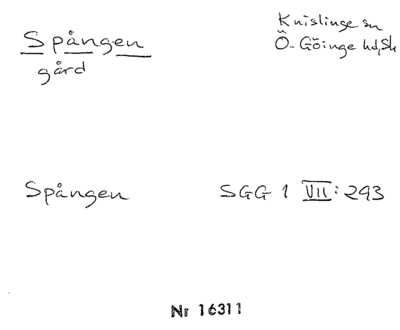 Spången
gård
Knislinge sn
Ö. Göinge hd, Sk
Spången
SGG 1 VII: 293
Nr 16311